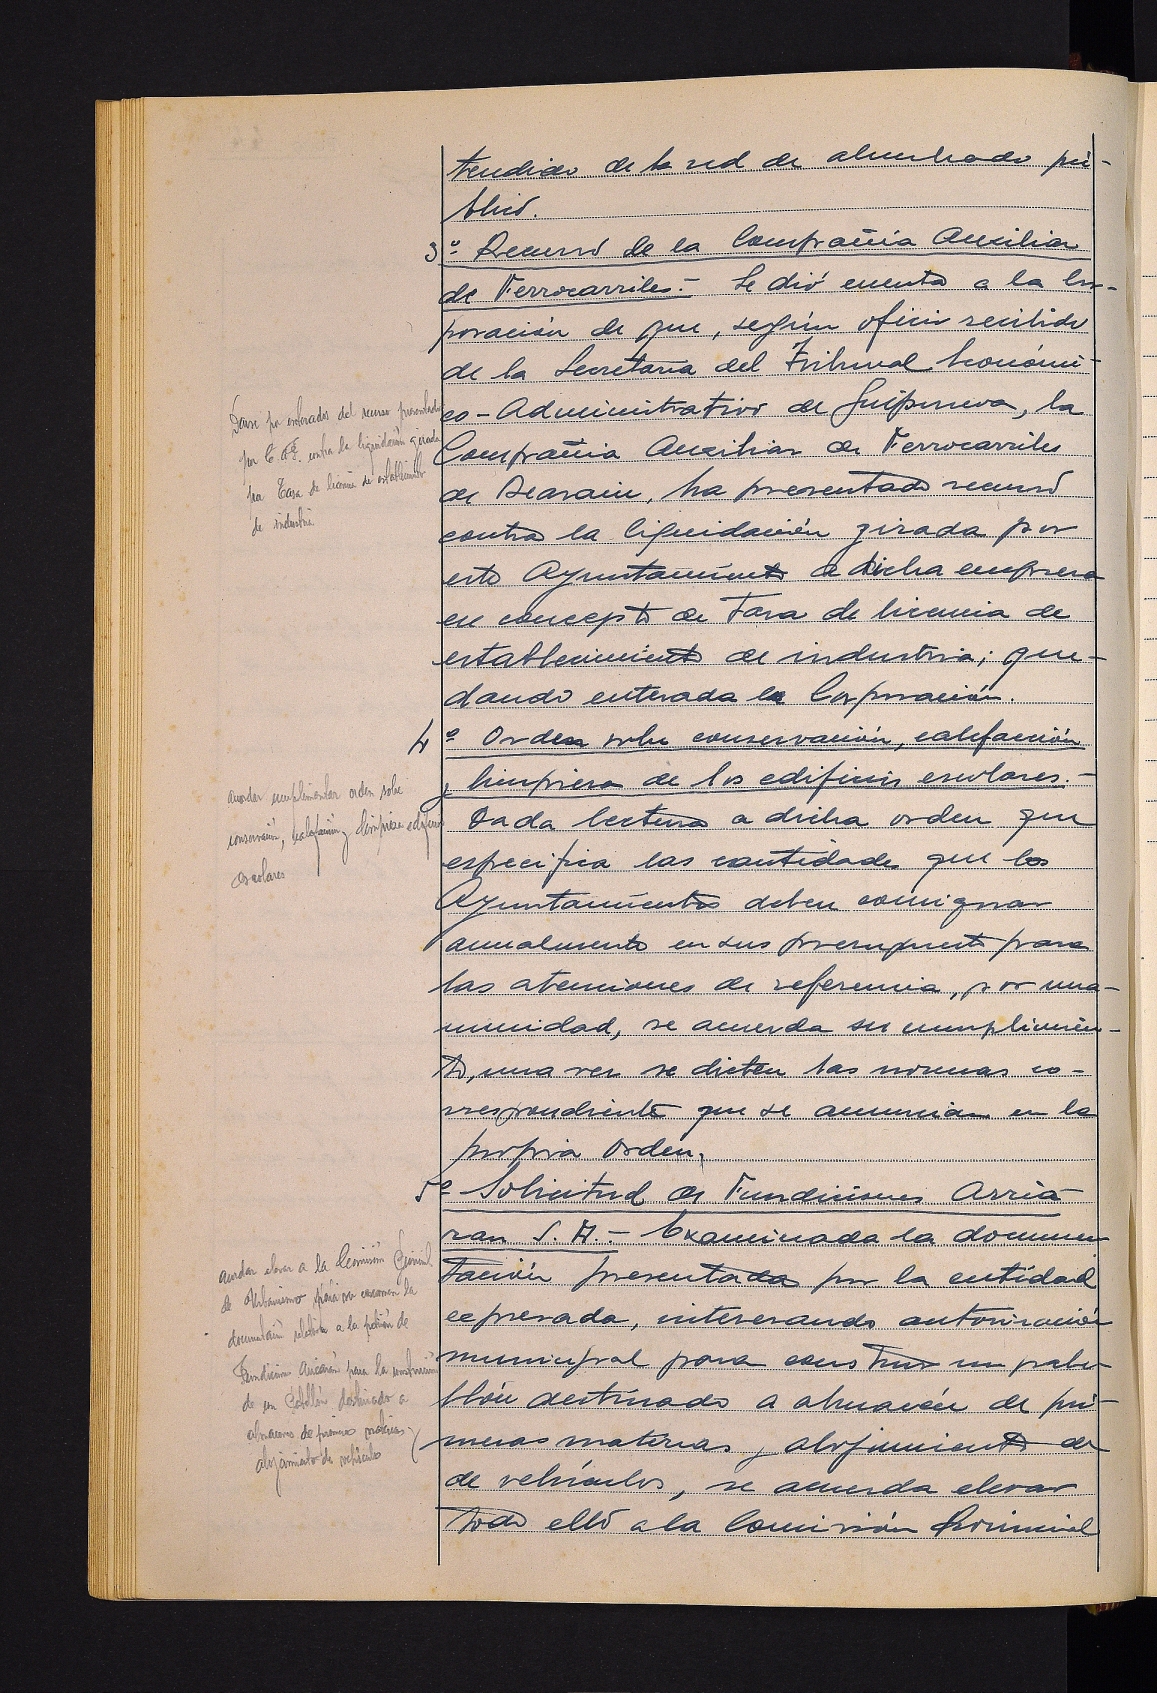 tendido de la red de alumbrado pú-
blico.
3º- Recurso de la Compañia Auxiliar
de Ferrocarriles.- Se dió cuenta a la Cor-
poración de que, según oficio recibido
de la Secretaria del Tribunal Económi-
co-Administrativo de Guipuzcoa, la
Compañia Auxiliar de Ferrocarriles
de Beasain, ha presentado recurso
contra la liquidación girada por
este Ayuntamiento a dicha empresa
en concepto de Tasa de licencia de
establecimiento de industria; que-
dando enterada la Corporación.
Darse por enterados del recurso presentado
por C.A.F. contra la liquidación girada
por Tasa de licencia de establecimiento
de industria
4º Orden sobre conservación, calefacción
y limpieza de los edificios escolares.-
Dada lectura a dicha orden que
especifica las cantidades que los
Ayuntamientos deben consignar
anualmente en sus presupuesto para
las atenciones de referencia, por una-
nimidad, se acuerda su cumplimien-
to, una vez se dicten las normas co-
rrespondiente que se anuncian en la
propia Orden.
acordar cumplimentar orden sobre
conservación, calefacción y limpieza edificios
escolares
5º Solicitud de Fundiciones Arria-
ran S.A.- Examinada la documen
tación presentada por la entidad
expresada, interesando autorización
municipal para construir un pabe-
llón destinado a almacén de pri-
meras materias y alojamiento de
de vehículos, se acuerda elevar
todo ello a la Comisión Provincial
acordar elevar a la Comisión Provincial
de Urbanismo para su examen la
documentación relativa a la petición de
Fundiciones Arriarán para la construcción
de un pabellón destinado a
almacenes de primeras materias y
alojamiento de vehículos